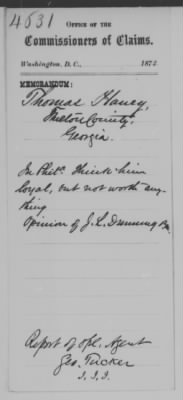 4631
OFFICE OF THE
Commissioners of Claims.
Washington, D. C., 1872.
MEMORANDUM:
Thomas Haney,
Milton County,
Georgia.
In Phil. think him
loyal, but not worth any-
thing
Opinion of J. L. Dunning
Report of Spl. Agent
Geo. Tucker